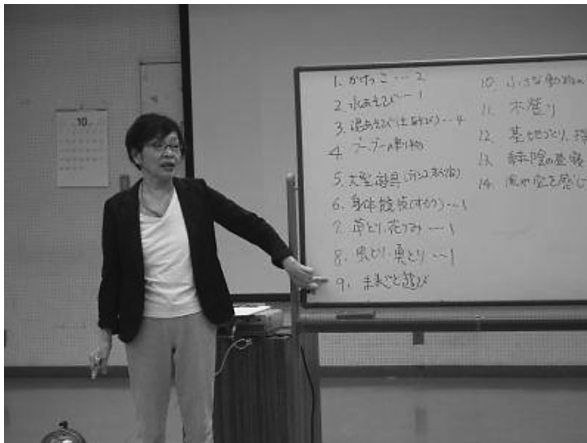 10
1. かけっこ … 2
2. 水あそび … 1
3. 泥あそび(土あそび) … 4
4.
5. 大型遊具
6. 身体競技 … 1
7. 草とり・花つみ … 1
8. 虫とり・魚とり … 1
9. ままごと遊び
10. 小さな動物
11. 木登り
12. 基地づくり
13. 緑陰の
14. 風や空を感じ